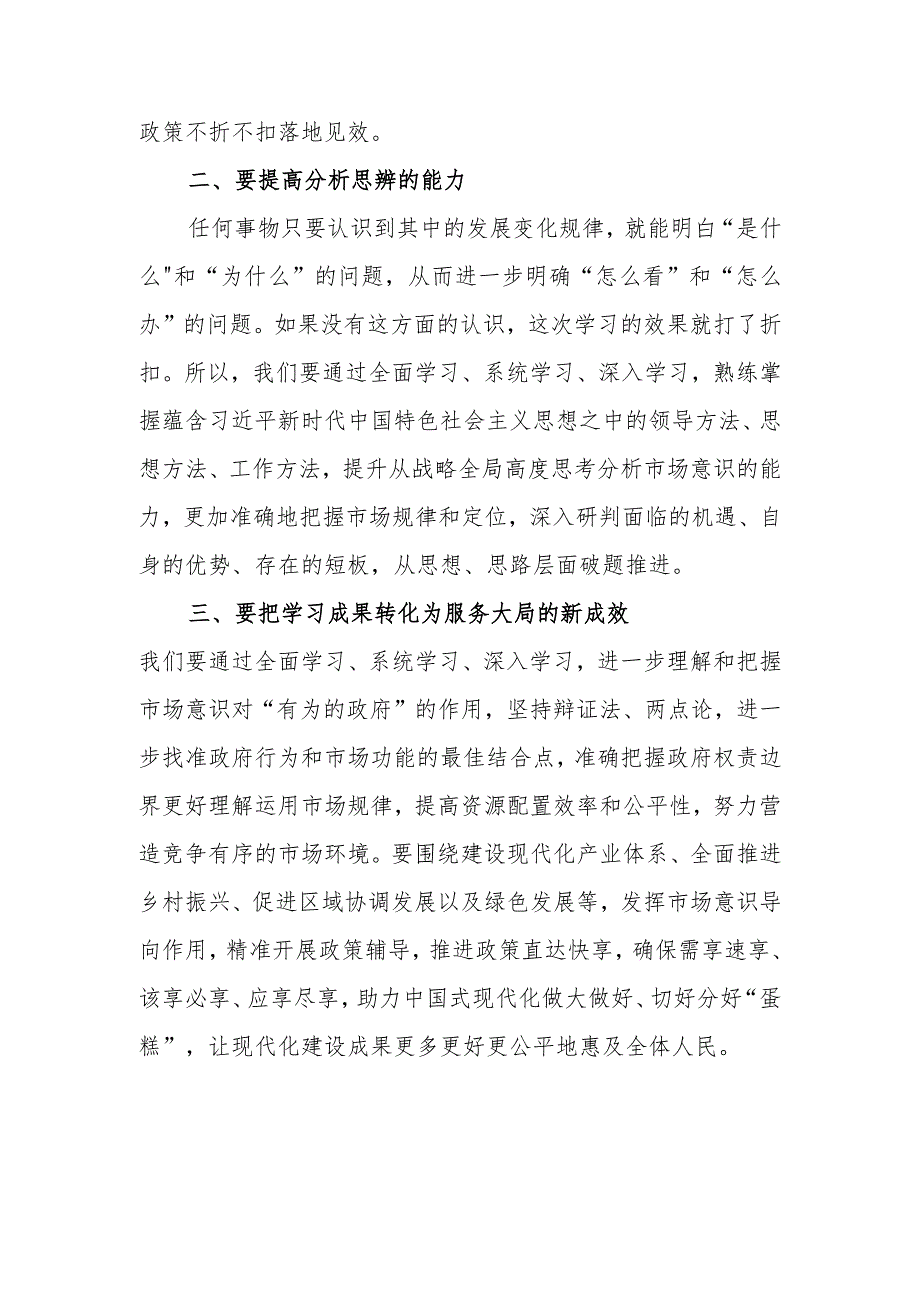 政策不折不扣落地见效。
二、要提高分析思辨的能力
任何事物只要认识到其中的发展变化规律，就能明白“是什
么"和“为什么”的问题，从而进一步明确“怎么看”和“怎么
办”的问题。如果没有这方面的认识，这次学习的效果就打了折
扣。所以，我们要通过全面学习、系统学习、深入学习，熟练掌
握蕴含习近平新时代中国特色社会主义思想之中的领导方法、思
想方法、工作方法，提升从战略全局高度思考分析市场意识的能
力，更加准确地把握市场规律和定位，深入研判面临的机遇、自
身的优势、存在的短板，从思想、思路层面破题推进。
三、要把学习成果转化为服务大局的新成效
我们要通过全面学习、系统学习、深入学习，进一步理解和把握
市场意识对“有为的政府”的作用，坚持辩证法、两点论，进一
步找准政府行为和市场功能的最佳结合点，准确把握政府权责边
界更好理解运用市场规律，提高资源配置效率和公平性，努力营
造竞争有序的市场环境。要围绕建设现代化产业体系、全面推进
乡村振兴、促进区域协调发展以及绿色发展等，发挥市场意识导
向作用，精准开展政策辅导，推进政策直达快享，确保需享速享、
该享必享、应享尽享，助力中国式现代化做大做好、切好分好“蛋
糕”，让现代化建设成果更多更好更公平地惠及全体人民。